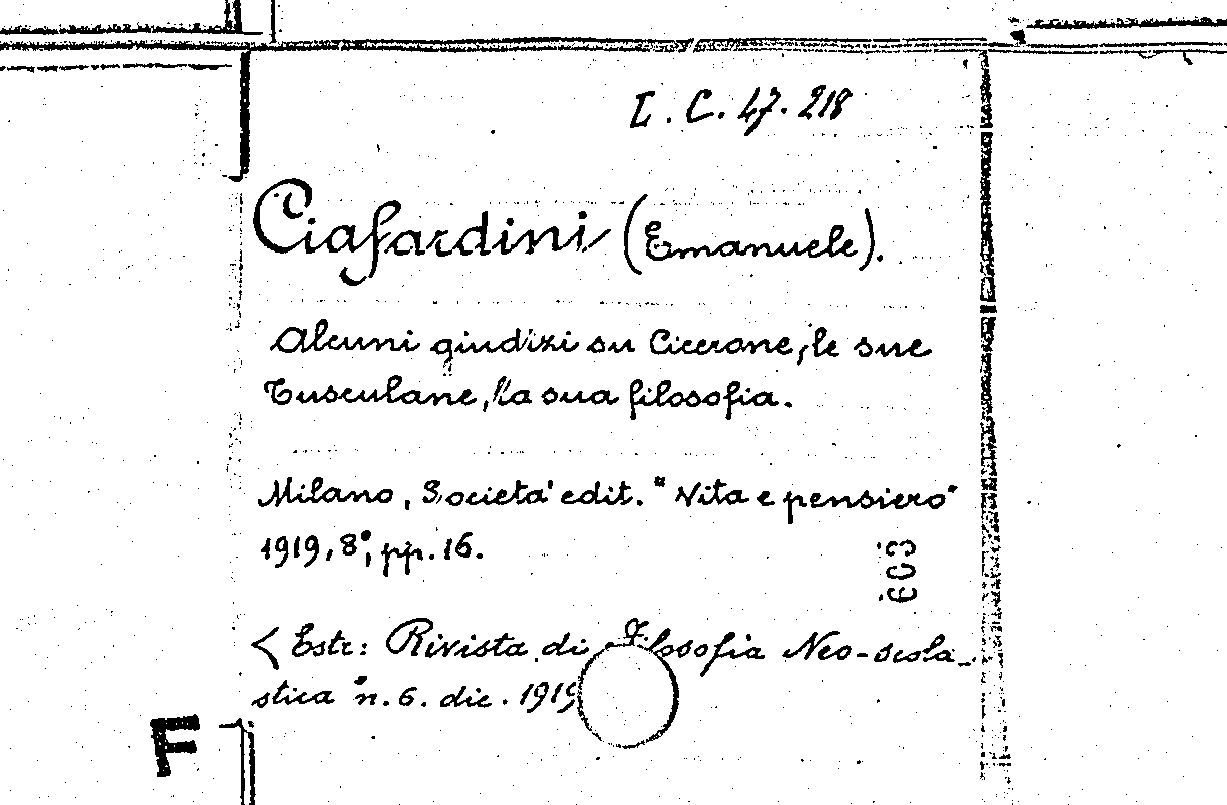 L. C. 47. 218
Ciafardini (Emanuele).
Alcuni giudizi su Cicerone, le sue
Tusculane, la sua filosofia.
Milano, Società edit. "Vita e pensiero"
1919, 8°, pp. 16.
603
< Estr: Rivista di Filosofia Neo-scola-
stica" n. 6. dic. 1919
F